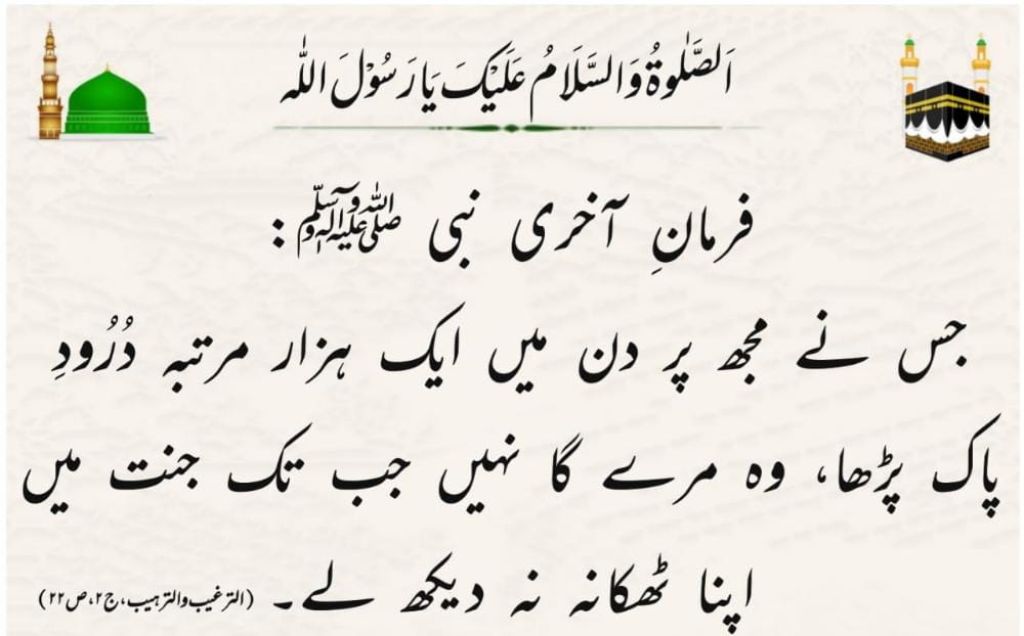 اَلصَّلٰوةُ وَالسَّلَامُ عَلَیْکَ یَارَسُوْلَ اللّٰہ
فرمانِ آخری نبی صلی اللہ علیہ واٰلہ وسلم :
جس نے مجھ پر دن میں ایک ہزار مرتبہ دُرُودِ
پاک پڑھا، وہ مرے گا نہیں جب تک جنت میں
اپنا ٹھکانہ نہ دیکھ لے۔ (الترغیب والترہیب، ج۲، ص۲۲)